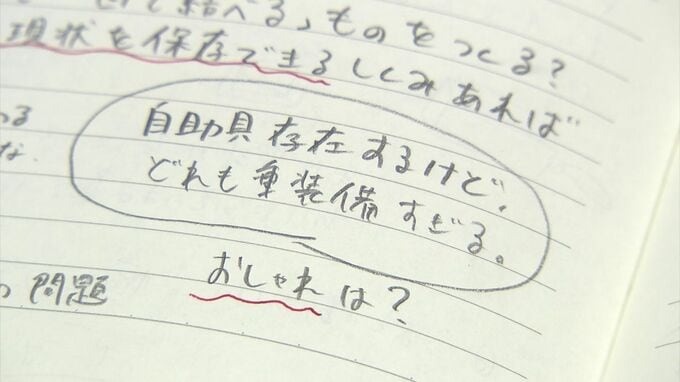 結べる」ものをつくる?
現状を保存できるしくみあれば
自助具存在するけど、
な.
どれも重装備すぎる。
の問題 おしゃれは?